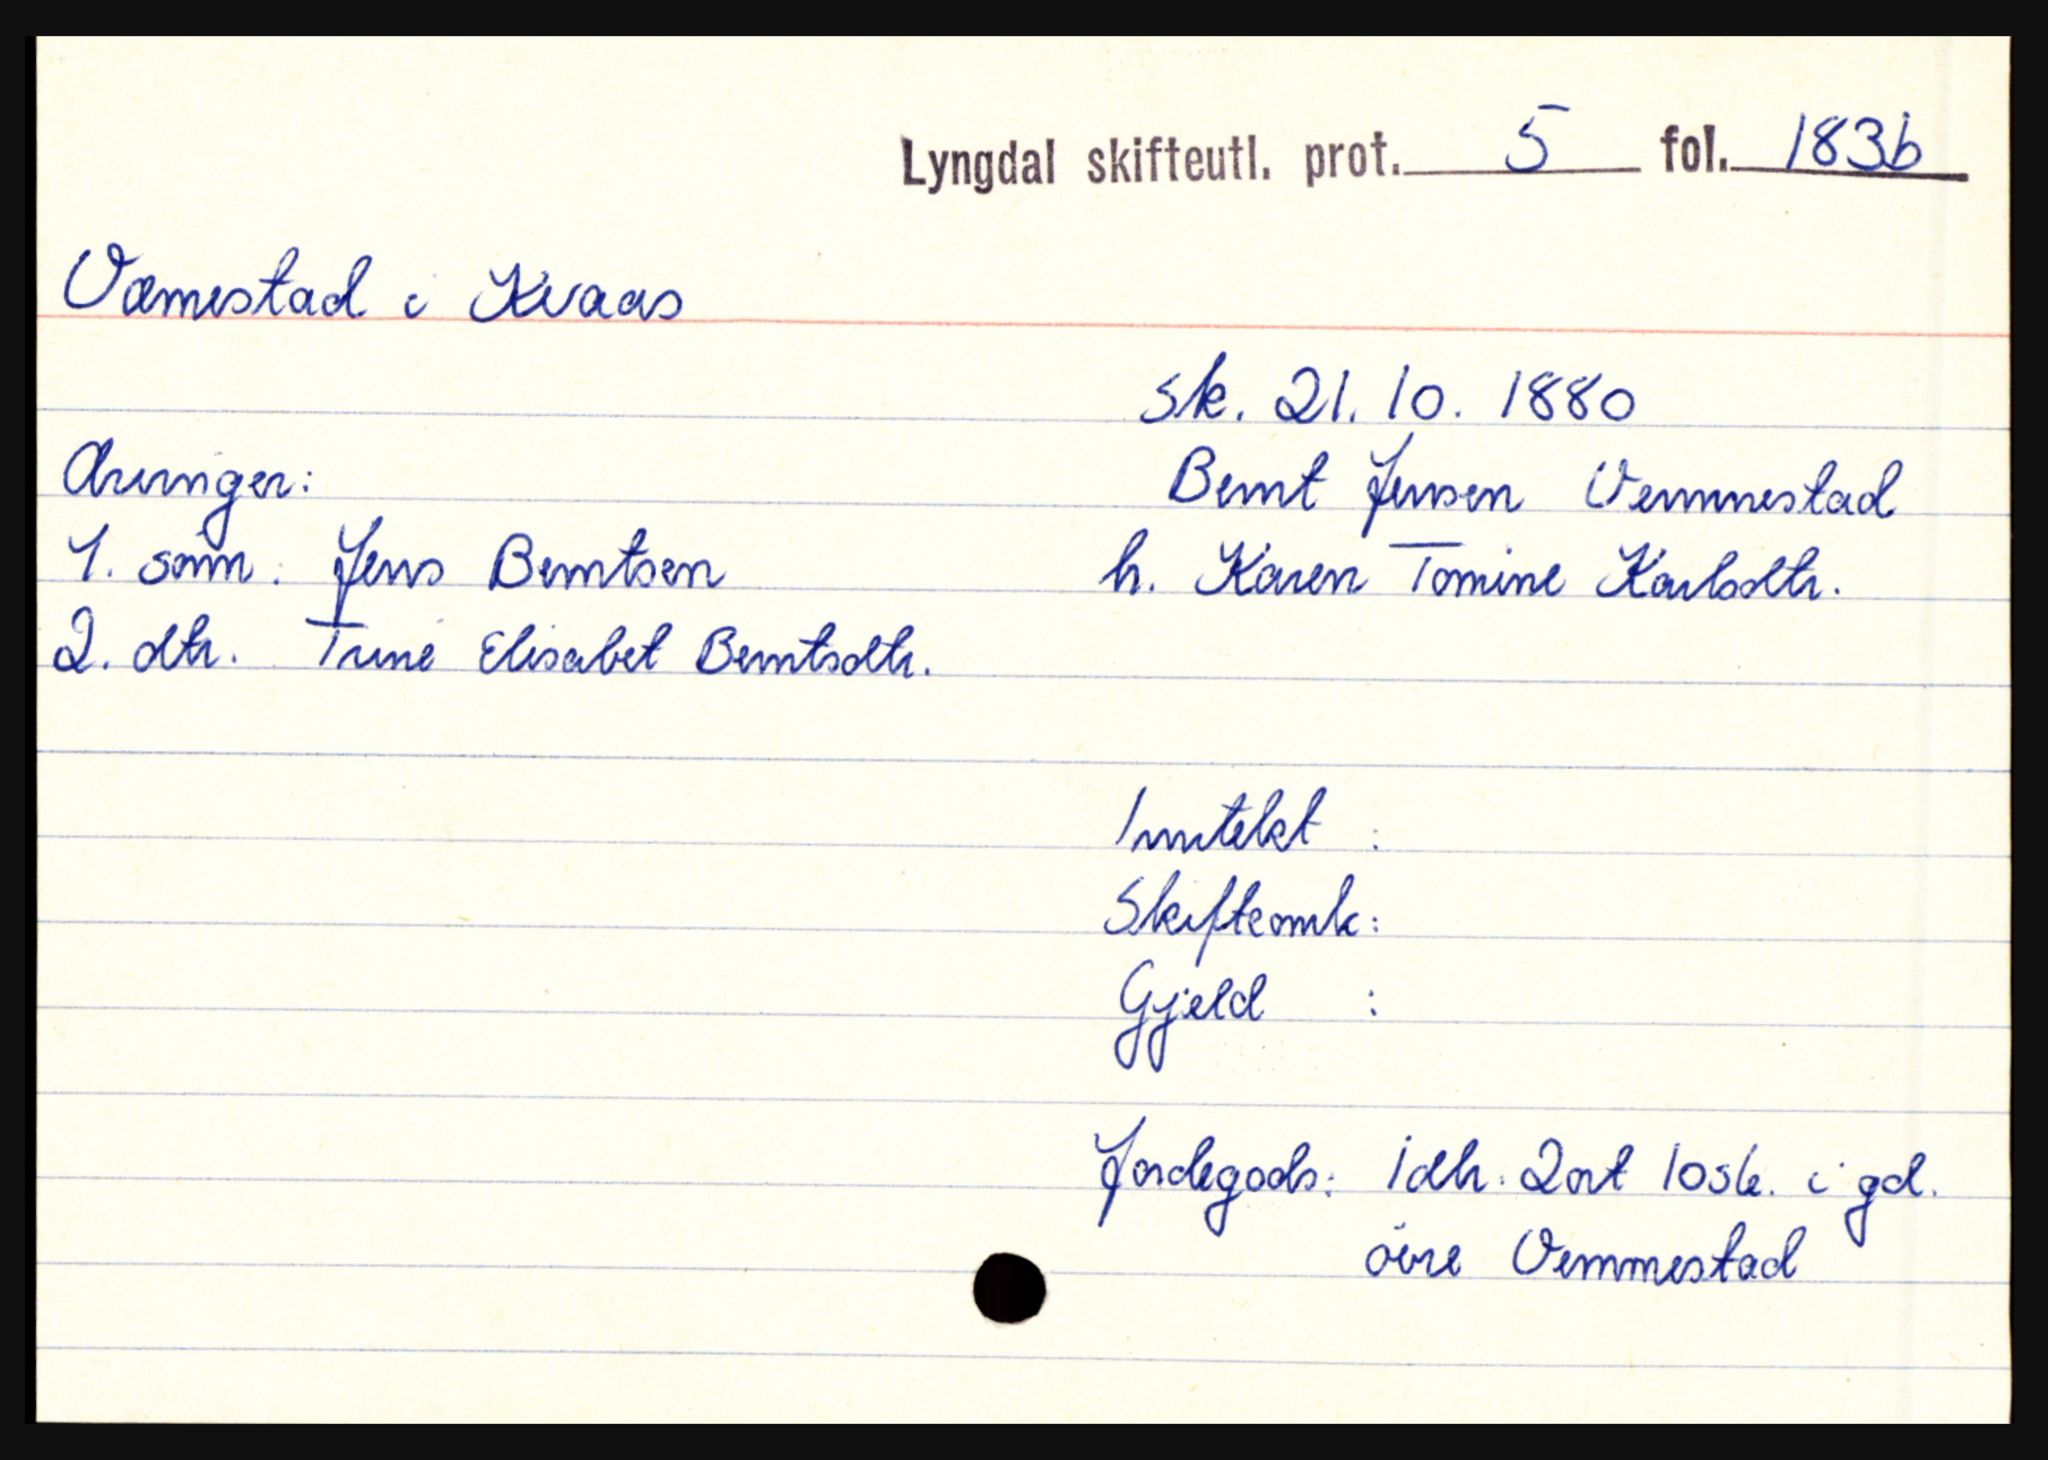 Lyngdal skifteutl. prot. 5 fol. 183b
Væmestad i Kvaas
sk. 21. 10. 1880
Bernt Jensen Vemmestad
h. Karen Tomine Karlsdtr.
Arvinger:
1. sønn: Jens Berntsen
2. dtr. Trine Elisabet Berntsdtr.
Inntekt :
Skifteomk:
Gjeld :
Jordegods: 1 dlr. 2 ort 10 sk. i gd.
øvre Vemmestad